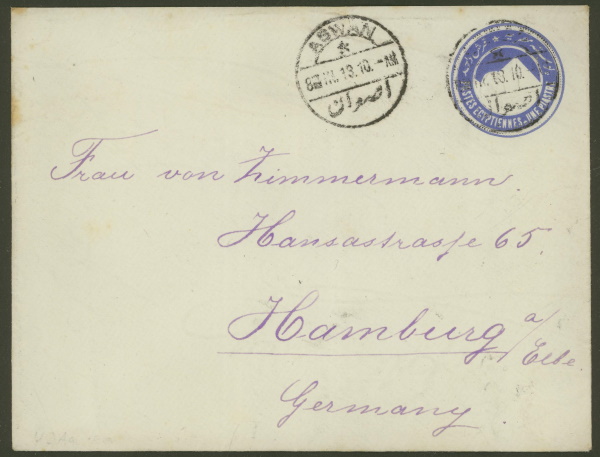 ASWAN
III.13.10.-AM
اصوان
III.13.10.
اصوان
POSTES EGYPTIENNES-UNE PIASTRE
Frau von Zimmermann.
Hansastrasse 65.
Hamburg a/Elbe
Germany